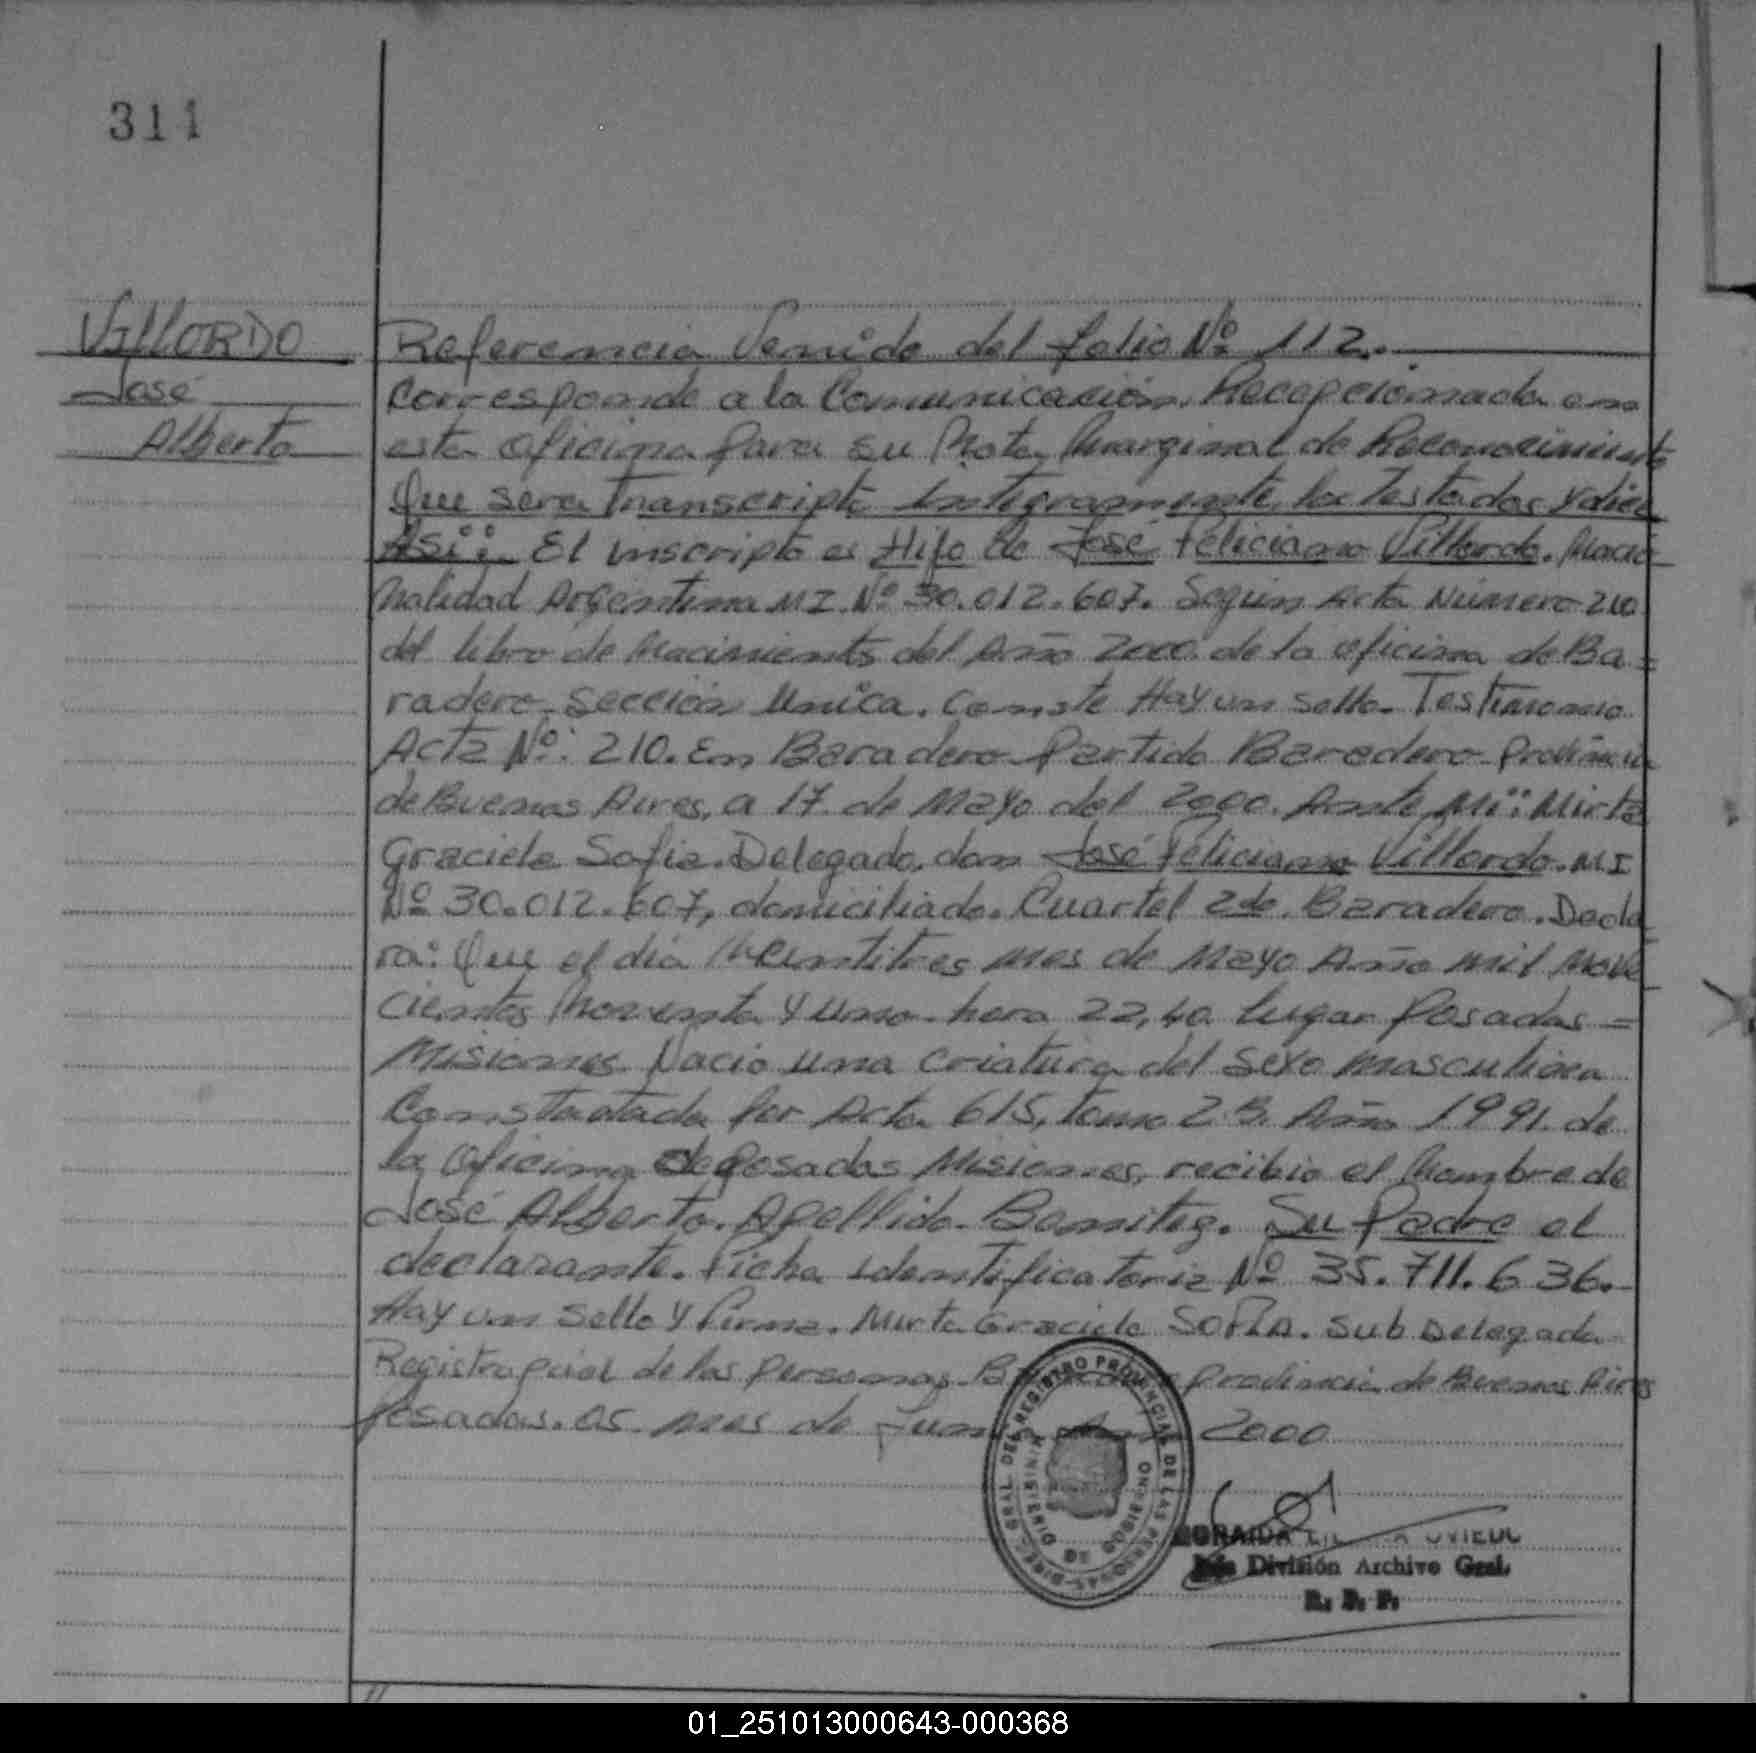 311
VillORDO
José
Alberto
Referencia Venida del folio Nº 112.
Corresponde a la Comunicación. Recepcionada en
esta oficina para su Nota Marginal de Reconocimiento
Que sera Transcripta Integramente, la Testada y dice
Asi: El inscripto es Hijo de José Feliciano Villordo. Nacio-
nalidad Argentina MI. Nº 30.012.607. Según Acta Número 210
del libro de Nacimientos del Año 2000. de la oficina de Ba=
radero. Sección Unica. Conste Hay un sello. Testimonio
Acta Nº: 210. En Baradero Partido Baradero Provincia
de Buenos Aires, a 17 de Mayo del 2000. Ante Mi: Mirta
Graciela Sofia. Delegado. don José Feliciano Villordo. MI
Nº 30.012.607, domiciliado. Cuartel 2do. Baradero. Decla
ra: Que el día Veintitres mes de Mayo Año mil Nove
cientos Noventa y uno. hora 22,40 lugar Posadas =
Misiones. Nacio una criatura del sexo masculino
Constatada por Acta 615, tomo 2.B. Año 1991. de
la oficina de Posadas Misiones, recibio el Nombre de
José Alberto. Apellido. Benitez. Su Padre el
declarante. Ficha Identificatoria Nº 35.711.636.
Hay un Sello y Firma. Mirta Graciela Sofia. Sub Delegada
Registro pcial de las Personas. Provincia de Buenos Aires
Posadas. 05 mes de 2000
DEL REGISTRO PROVINCIAL DE LAS PERSONAS
OVIEDO
Jefe División Archivo Gral.
R. P. P.
01_251013000643-000368